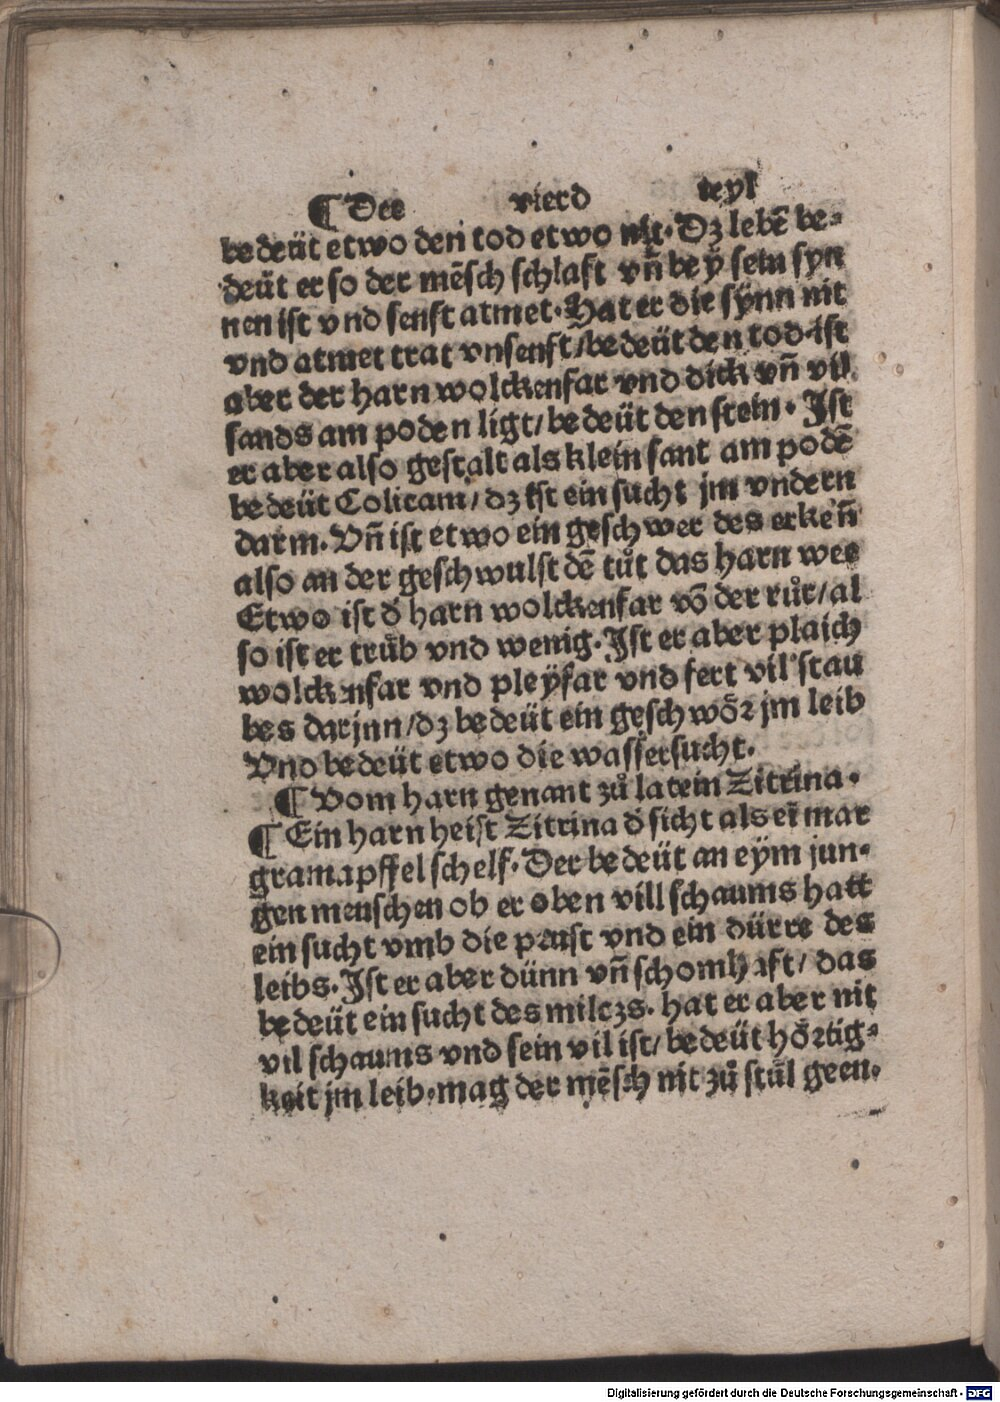 ¶ Der vierd teyl
bedeüt etwo den tod etwo nit. Dz lebē be⸗
deüt er so der mēsch schlaft vn̄ bey sein syn
nen ist vnd senft atmet. Hat er die sÿnn nit
vnd atmet trat vnsenft/bedeüt den tod. ist
aber der harn wolckenfar vnd dick vn̄ vil
sands am poden ligt/bedeüt den stein. Ist
er aber also gestalt als klein sant am podē
bedeüt Colicam/dz ist ein sucht jm vndern
darm. Vn̄ ist etwo ein geschwer des erken̄
also an der geschwulst dē tůt das harn wee
Etwo ist d̄ harn wolckenfar vō der růr/al
so ist er trüb vnd wenig. Ist er aber plaich
wolckenfar vnd pleÿfar vnd fert vil stau
bes darjnn/dz bedeüt ein geschwör jm leib
Vnd bedeüt etwo die wassersucht.
¶ Vom harn genant zů latein Zitrina.
¶ Ein harn heist Zitrina d̄ sicht als ei mar
gramapffel schelf. Der bedeüt an eÿm jun⸗
gen menschen ob er oben vill schaums hatt
ein sucht vmb die prust vnd ein dürre des
leibs. Ist er aber dünn vn̄ schomhaft/das
bedeüt ein sucht des milczs. hat er aber nit
vil schaums vnd sein vil ist/bedeüt hörtig⸗
keit jm leib. mag der mēsch nit zů stůl geen.
Digitalisierung gefördert durch die Deutsche Forschungsgemeinschaft - DFG